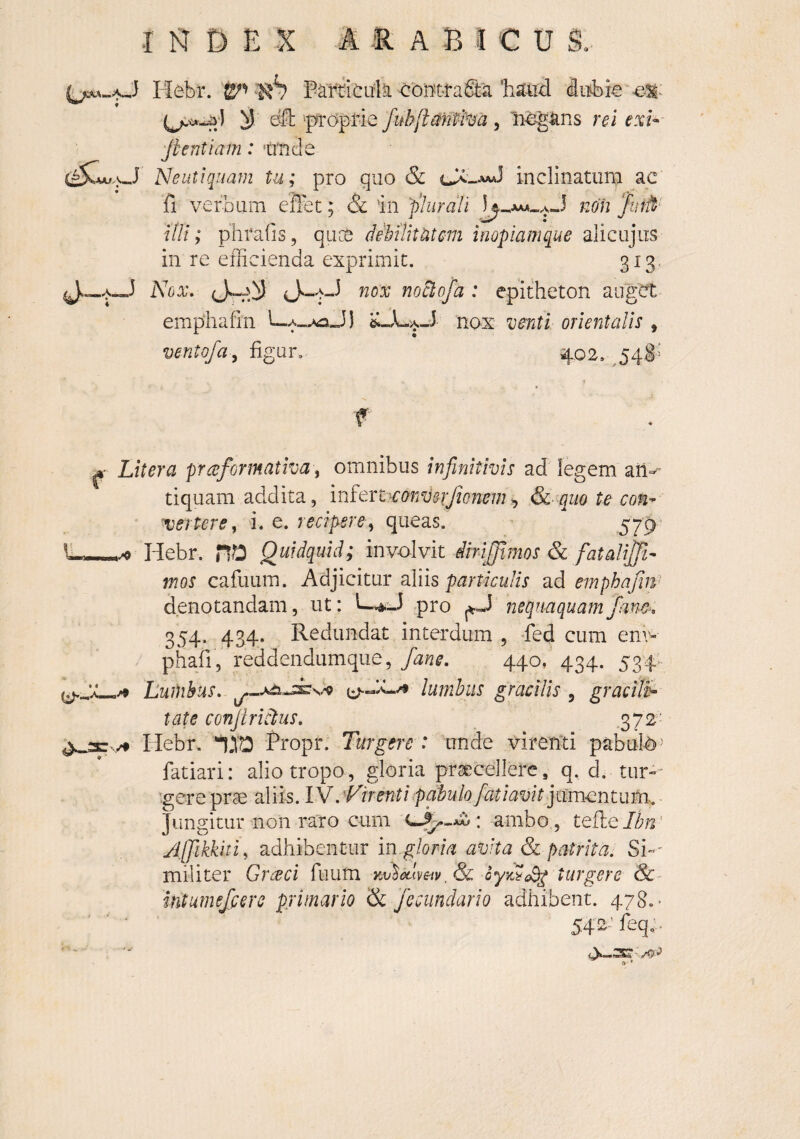 INDEX ARABICUS.
ليس Hebr. יש לא Particula contracta haud dubie ex
ايس لا est proprie ſubſtantiva, negans rei exi-
ſtentiam: unde
ليسك Neutiquam tu; pro quo & لسك inclinatum ac
ſi verbum eſſet; & in plurali ليسوا non ſunt
illi; phraſis, quæ debilitatem inopiamque alicujus
in re efficienda exprimit. 313.
ليل Nox. ليل لايل nox noctoſa: epitheton auget
emphaſin ليلة الصبا nox venti orientalis,
ventoſa, figur. 402. 548
م
م Litera præformativa, omnibus infinitivis ad legem an-
tiquam addita, infert converſionem, & quo te con-
vertere, i. e. recipere, queas. 579
ما Hebr. מה Quidquid; involvit diriſſimos & fataliſſi-
mos caſuum. Adjicitur aliis particulis ad emphaſin
denotandam, ut: لما pro لم nequaquam ſane.
354. 434. Redundat interdum, ſed cum em-
phaſi, reddendumque, ſane. 440. 434. 534
متن Lumbus. متن lumbus gracilis, gracili-
tate conſtrictus. 372
مجد Hebr. מגד Propr. Turgere: unde virenti pabulo
ſatiari: alio tropo, gloria præcellere, q. d. tur-
gere præ aliis. IV. Virenti pabulo ſatiavit jumentum.
Jungitur non raro cum شرف: ambo, teſte Ibn
Aſſikkiti, adhibentur in gloria avita & patrita. Si-
militer Græci ſuum κυδαίνειν & ὀγκοῦσθαι turgere &
intumeſcere primario & ſecundario adhibent. 478.
542 ſeq.